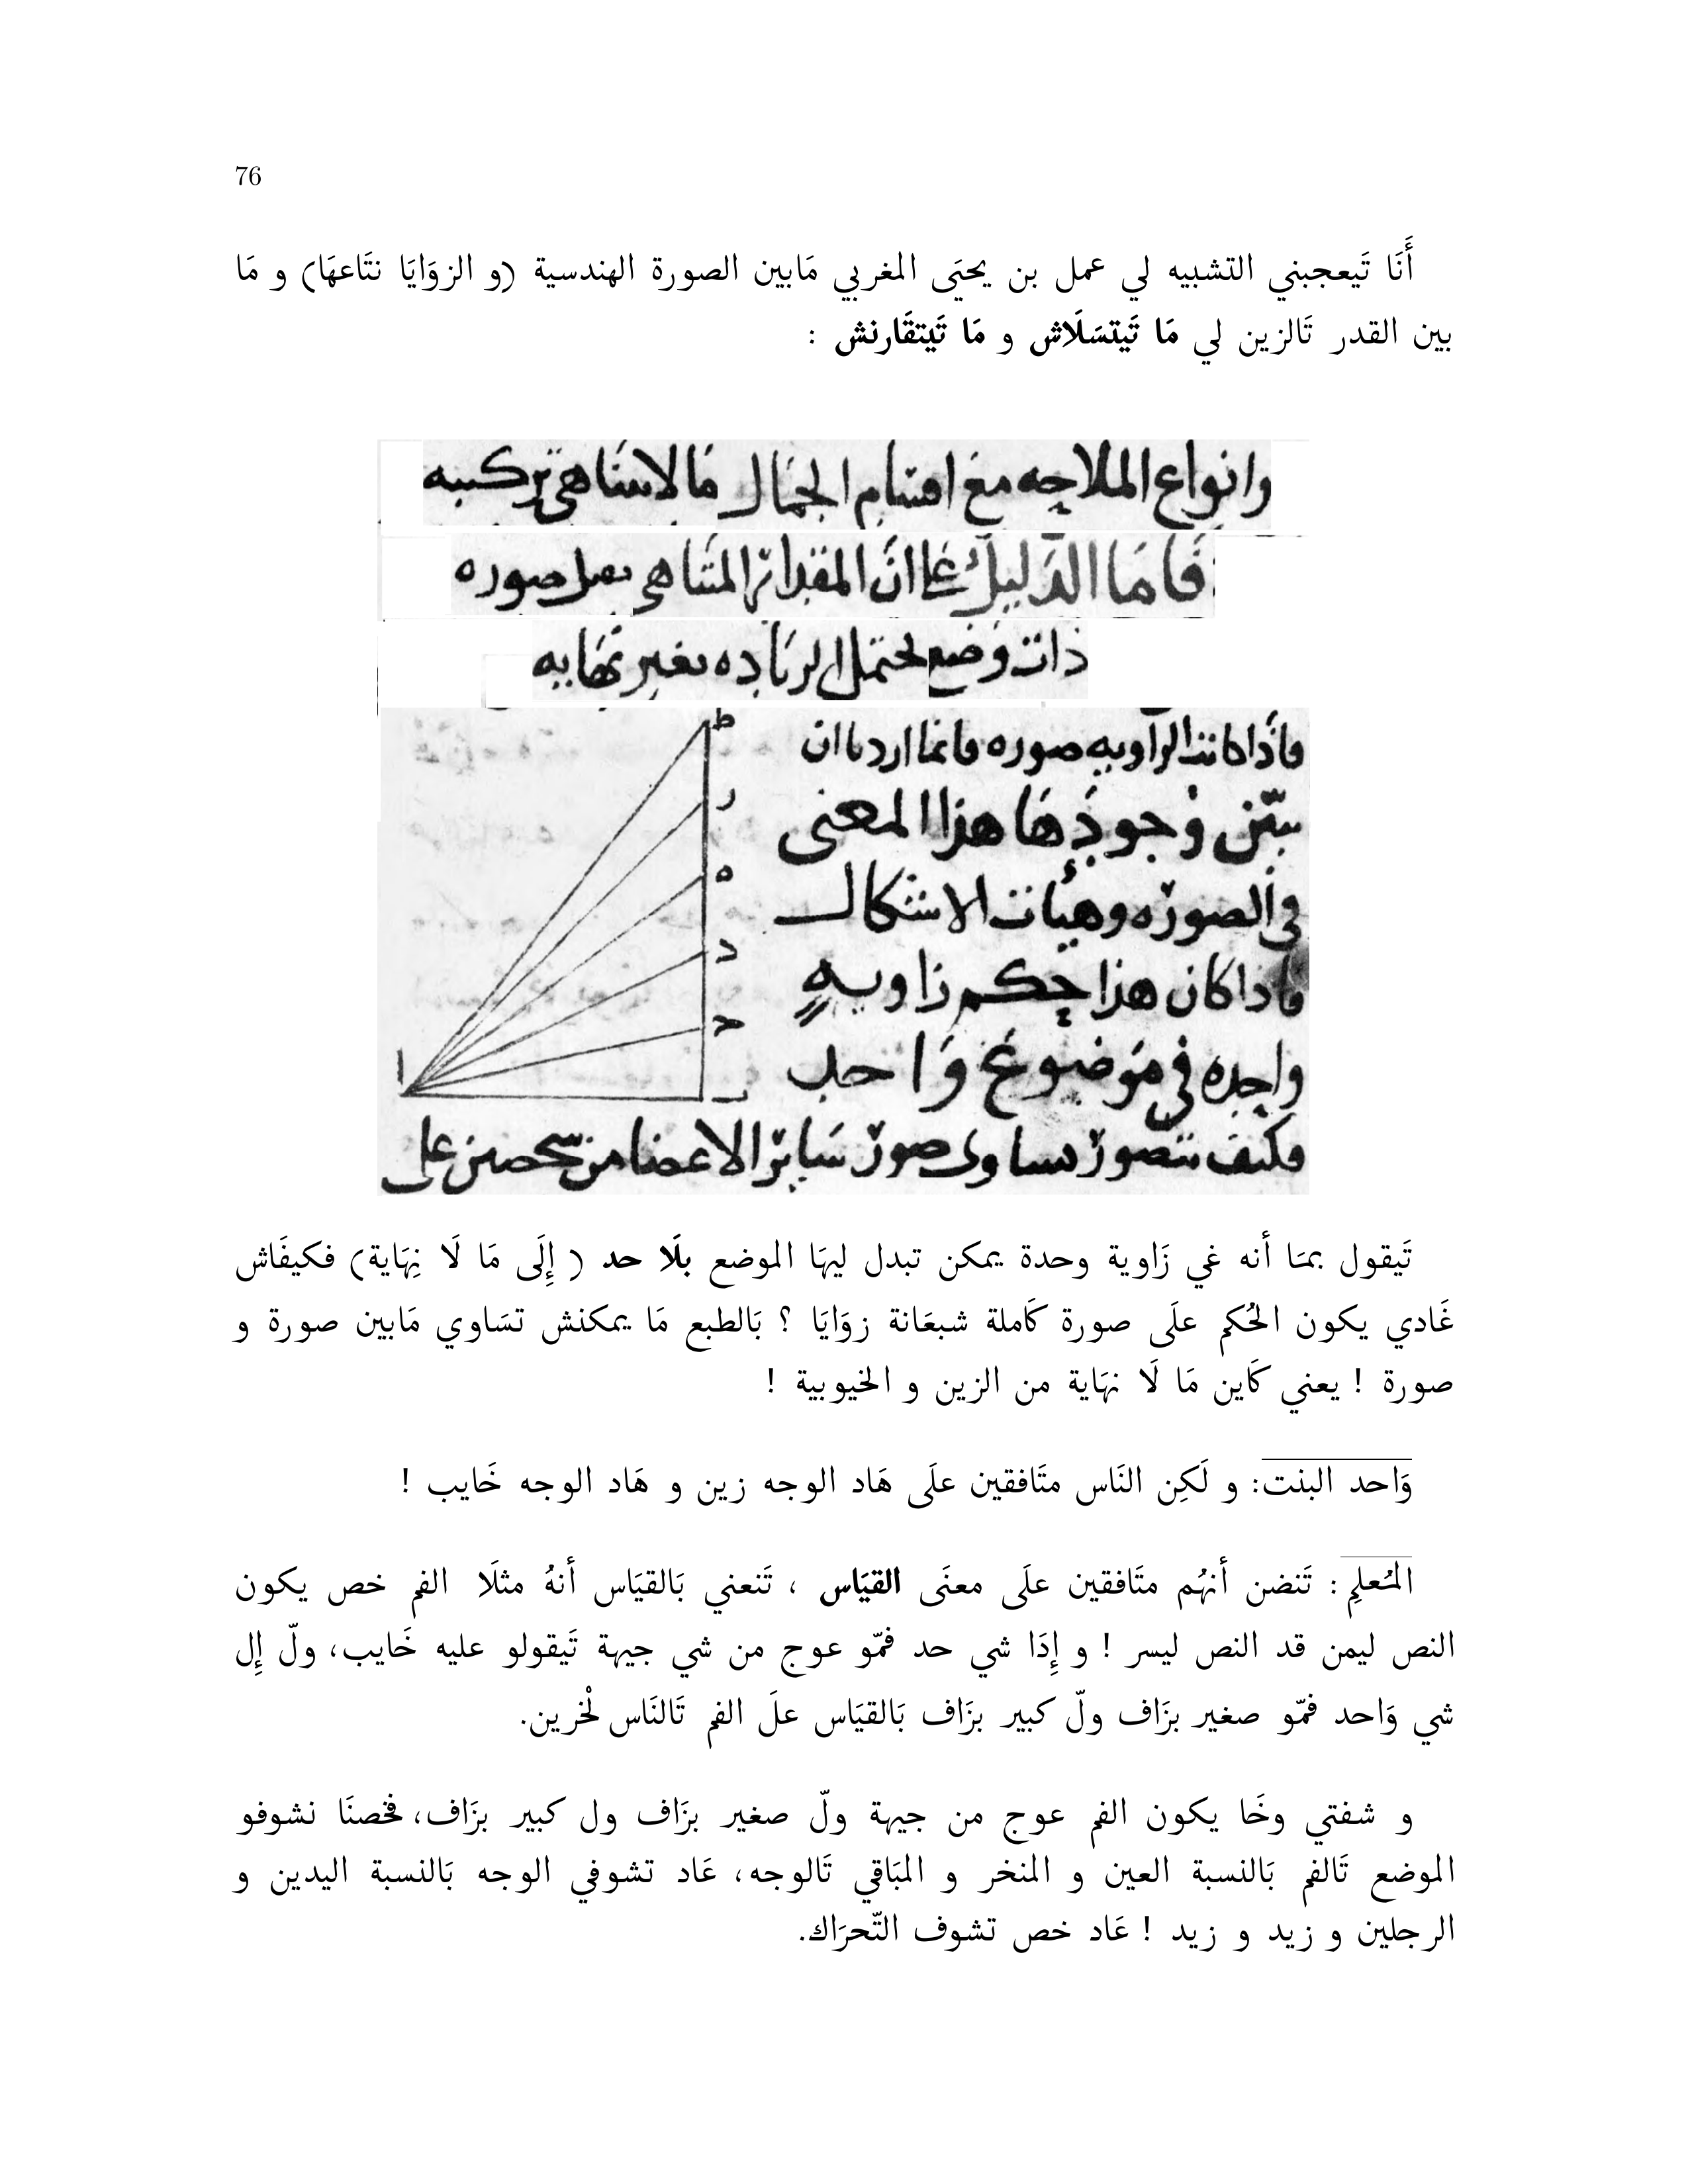 76
أَنَا تَيعجبني التشبيه لي عمل بن يحيَى المغربي مَابين الصورة الهندسية (و الزوَايَا نتَاعهَا) و مَا
بين القدر تَالزين لي مَا تَيتسَلَاش و مَا تَيتقَارنش :
وانواع الملاحه مع اقسام الجمال مالا يتناهى تركيبه
فاما الدليل على ان المقدار المتناهى يقبل صوره
ذات وضع يحتمل الزياده بغير نهايه
فاذا كانت الزاويه صوره فانما اردنا ان
نبين وجودها هذا المعنى
فى الصوره وهيات الاشكال
فاذا كان هذا حكم زاويه
واحده فى موضوع واحد
فكيف تتصور تساوى صور ساير الاعضا من شخصين على
ط
ر
ه
د
ح
ب
ا
تَيقول بمَا أنه غي زَاوية وحدة يمكن تبدل ليهَا الموضع بلَا حد ( إِلَى مَا لَا نِهَاية) فكيفَاش
غَادي يكون الحُكم علَى صورة كَاملة شبعَانة زوَايَا ؟ بَالطبع مَا يمكنش تسَاوي مَابين صورة و
صورة ! يعني كَاين مَا لَا نهَاية من الزين و الخيوبية !
وَاحد البنت: و لَكِن النَاس متَافقين علَى هَاد الوجه زين و هَاد الوجه خَايب !
المُعلِم: تَنضن أنهُم متَافقين علَى معنَى القيَاس ، تَنعني بَالقيَاس أنهُ مثلَا الفم خص يكون
النص ليمن قد النص ليسر ! و إِدَا شي حد فمّو عوج من شي جيهة تَيقولو عليه خَايب، ولّ إِل
شي وَاحد فمّو صغير بزَاف ولّ كبير بزَاف بَالقيَاس علَ الفم تَالنَاس لْخرين.
و شفتي وخَا يكون الفم عوج من جيهة ولّ صغير بزَاف ول كبير بزَاف، فخصنَا نشوفو
الموضع تَالفم بَالنسبة العين و المنخر و المبَاقي تَالوجه، عَاد تشوفي الوجه بَالنسبة اليدين و
الرجلين و زيد و زيد ! عَاد خص تشوف التّحرَاك.